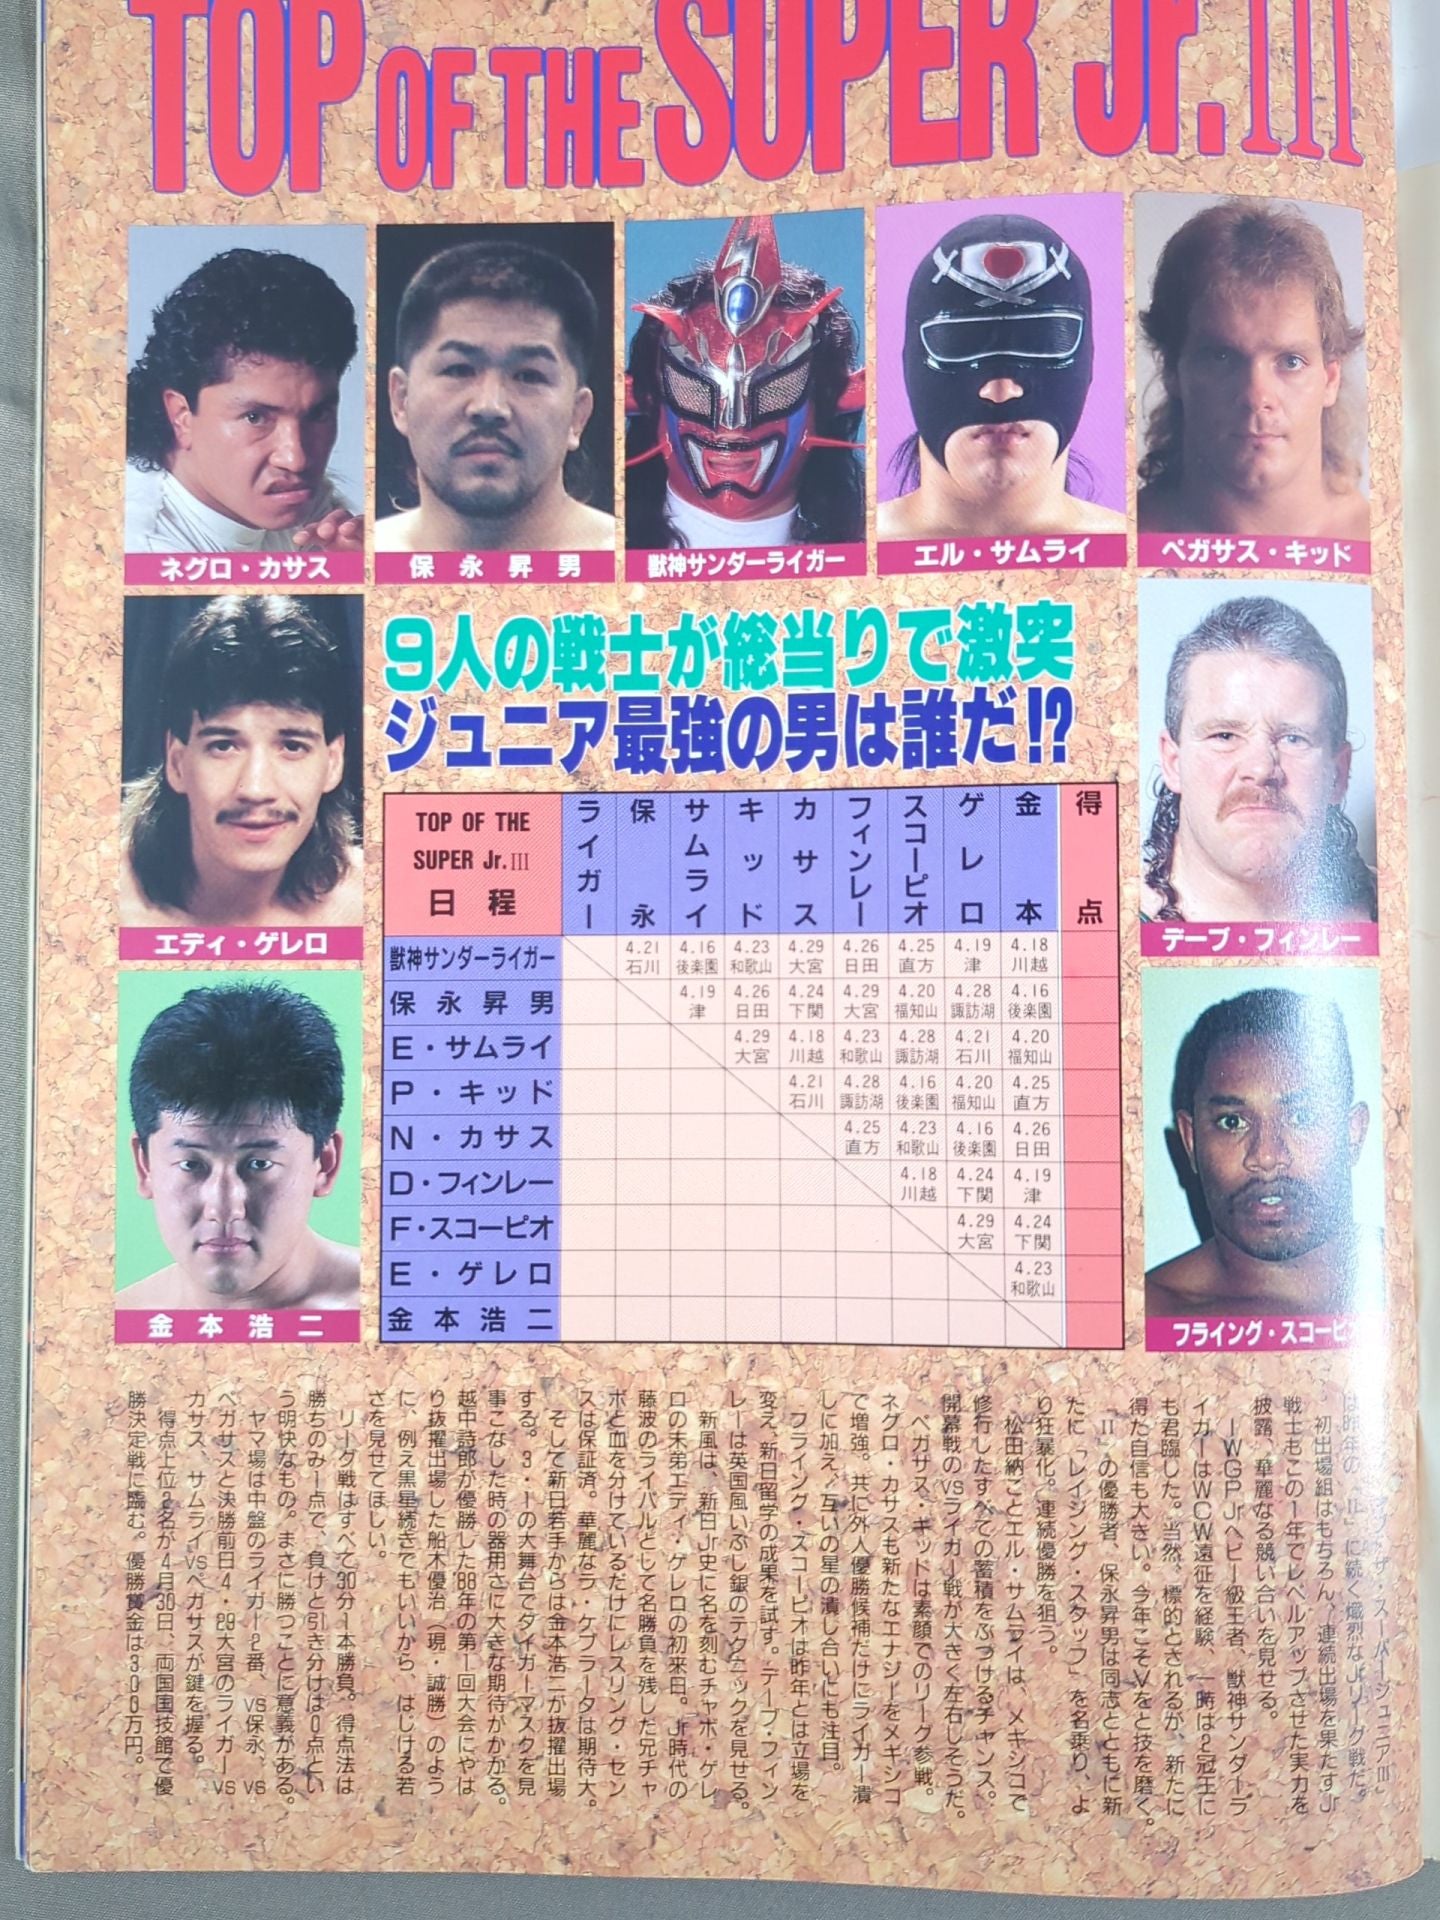 TOP OF THE SUPER Jr.III
ネグロ・カサス
保永昇男
獣神サンダーライガー
エル・サムライ
ペガサス・キッド
エディ・ゲレロ
デーブ・フィンレー
金本浩二
フライング・スコーピオ
9人の戦士が総当りで激突
ジュニア最強の男は誰だ!?
TOP OF THE SUPER Jr.III 日程 ライガー 保永 サムライ キッド カサス フィンレー スコーピオ ゲレロ 金本 得点
獣神サンダーライガー 4.21石川 4.16後楽園 4.23和歌山 4.29大宮 4.26日田 4.25直方 4.19津 4.18川越
保永昇男 4.19津 4.26日田 4.24下関 4.29大宮 4.20福知山 4.28諏訪湖 4.16後楽園
E・サムライ 4.29大宮 4.18川越 4.23和歌山 4.28諏訪湖 4.21石川 4.20福知山
P・キッド 4.21石川 4.28諏訪湖 4.16後楽園 4.20福知山 4.25直方
N・カサス 4.25直方 4.23和歌山 4.16後楽園 4.26日田
D・フィンレー 4.18川越 4.24下関 4.19津
F・スコーピオ 4.29大宮 4.24下関
E・ゲレロ 4.23和歌山
金本浩二
ザ・スーパージュニアIII」
は昨年の「II」に続く熾烈なJrリーグ戦だ。
初出場組はもちろん、連続出場を果たすJr
戦士もこの1年でレベルアップさせた実力を
披露、華麗なる競い合いを見せる。
IWGPJrヘビー級王者、獣神サンダーラ
イガーはWCW遠征を経験、一時は2冠王に
も君臨した。当然、標的とされるが、新たに
得た自信も大きい。今年こそVをと技を磨く。
「II」の優勝者、保永昇男は同志とともに新
たに「レイジング・スタッフ」を名乗り、よ
り狂暴化。連続優勝を狙う。
松田納ことエル・サムライは、メキシコで
修行したすべての蓄積をぶつけるチャンス。
開幕戦のvsライガー戦が大きく左右しそうだ。
ペガサス・キッドは素顔でのリーグ参戦。
ネグロ・カサスも新たなエナジーをメキシコ
で増強。共に外人優勝候補だけにライガー潰
しに加え、互いの星の潰し合いにも注目。
フライング・スコーピオは昨年とは立場を
変え、新日留学の成果を試す。デーブ・フィン
レーは英国風いぶし銀のテクニックを見せる。
新風は、新日Jr史に名を刻むチャボ・ゲレ
ロの末弟エディ・ゲレロの初来日。Jr時代の
藤波のライバルとして名勝負を残した兄チャ
ボと血を分けているだけにレスリング・セン
スは保証済。華麗なラ・ケブラータは期待大。
そして新日若手からは金本浩二が抜擢出場
する。3・1の大舞台でタイガーマスクを見
事こなした時の器用さに大きな期待がかかる。
越中詩郎が優勝した'88年の第1回大会にやは
り抜擢出場した船木優治（現・誠勝）のよう
に、例え黒星続きでもいいから、はじける若
さを見せてほしい。
リーグ戦はすべて30分1本勝負。得点法は
勝ちのみ1点で、負けと引き分けは0点とい
う明快なもの。まさに勝つことに意義がある。
ヤマ場は中盤のライガー2番、vs保永、vs
ペガサスと決勝前日4・29大宮のライガーvs
カサス、サムライvsペガサスが鍵を握る。
得点上位2名が4月30日、両国国技館で優
勝決定戦に臨む。優勝賞金は300万円。